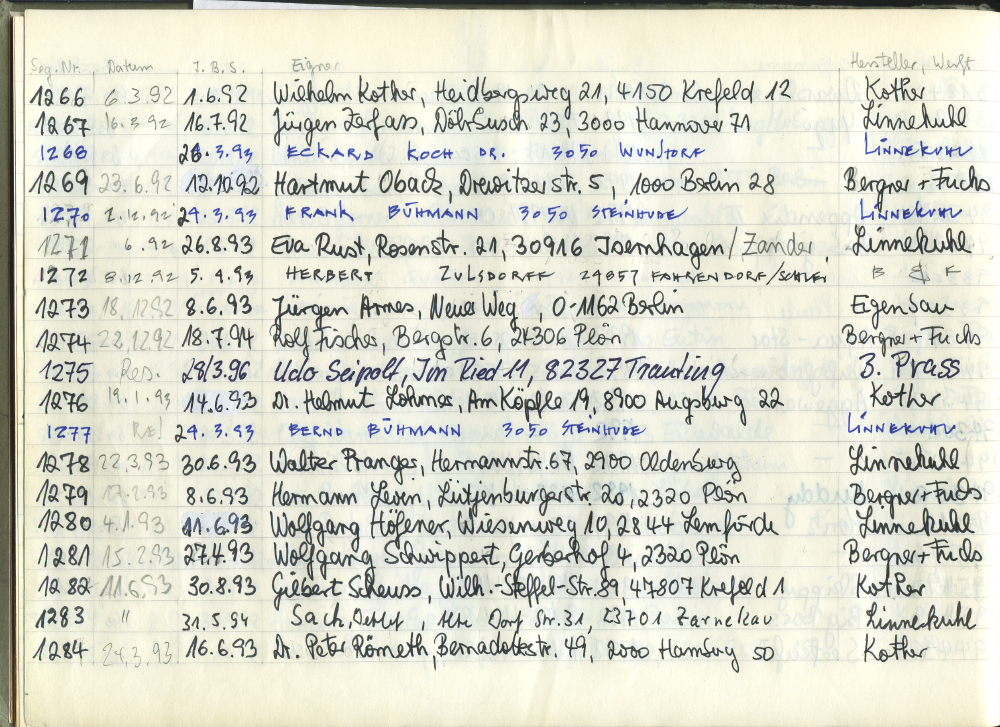 Seg. Nr. Datum J.B.S. Eigner Hersteller, Werft
1266 6.3.92 1.6.92 Wilhelm Kother, Heidbergsweg 21, 4150 Krefeld 12 Kother
1267 16.3.92 16.7.92 Jürgen Zerfass, 23, 3000 Hannover 71 Linnekuhl
1268 26.3.93 ECKARD KOCH DR. 3050 WUNSTORF LINNEKUHL
1269 23.6.92 12.10.92 Hartmut Oback, Drewitzerstr. 5, 1000 Berlin 28 Bergner + Fuchs
1270 2.12.92 24.3.93 FRANK BÜHMANN 3050 STEINHUDE LINNEKUHL
1271 6.92 26.8.93 Eva Rust, Rosenstr. 21, 30916 Isernhagen/Zander Linnekuhl
1272 8.12.92 5.4.93 HERBERT ZULSDORFF 24857 FAHRENDORF/SCHLEI B & F
1273 18.1292 8.6.93 Jürgen Armes, Neuer Weg, O-1162 Berlin Eigenbau
1274 22.1292 18.7.94 Rolf Fischer, Bergstr. 6, 24306 Plön Bergner + Fuchs
1275 Res. 28/3.96 Udo Seipolf, Im Ried 11, 82327 Trautling B. Prass
1276 19.1.93 14.6.93 Dr. Helmut Lohmer, Am Köpfle 19, 8900 Augsburg 22 Kother
1277 RE! 24.3.93 BERND BÜHMANN 3050 STEINHUDE LINNEKUHL
1278 22.3.93 30.6.93 Walter Pranger, Hermannstr. 67, 2900 Oldenburg Linnekuhl
1279 17.2.93 8.6.93 Hermann Lütjenburgerstr 28, 2320 Plön Bergner + Fuchs
1280 4.1.93 11.6.93 Wolfgang Höfener, Wiesenweg 10, 2844 Lemförde Linnekuhl
1281 15.2.93 27.4.93 Wolfgang Schwippert, Gerberhof 4, 2320 Plön Bergner + Fuchs
1282 11.6.93 30.8.93 Giebert Scheuss, Wilh.-Steffel-Str. 89, 47807 Krefeld 1 Kother
1283 " 31.5.94 Sach, Detlef Alte Dorf Str. 31, 23701 Zarnekau Linnekuhl
1284 24.3.93 16.6.93 Dr. Peter Römeth, Bernadottestr. 49, 2000 Hamburg 50 Kother